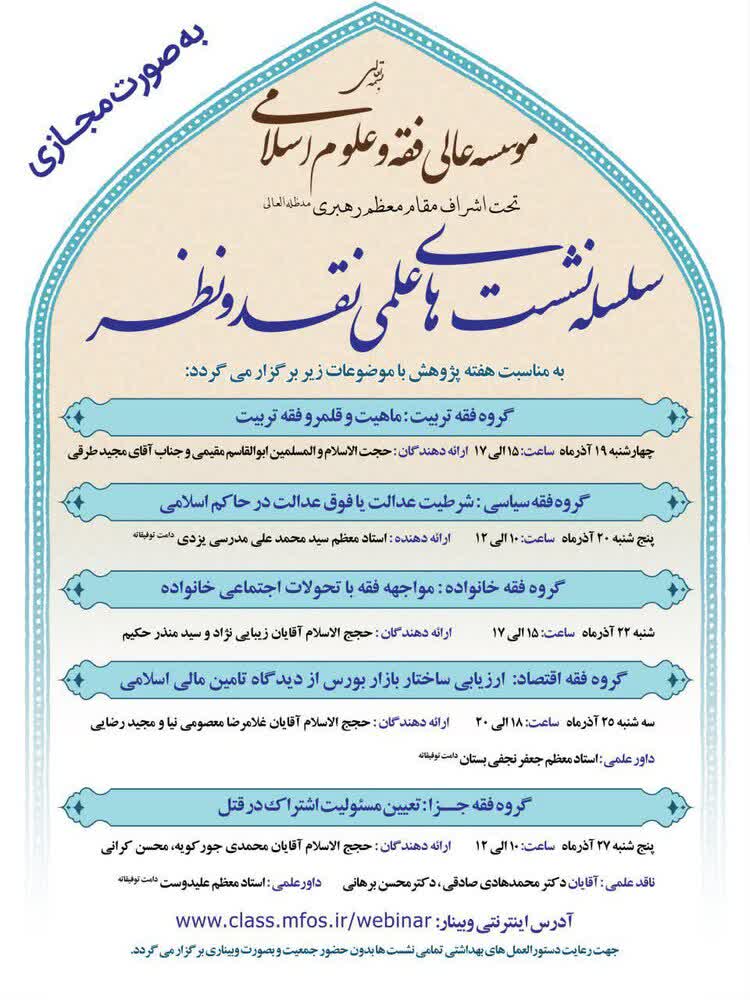 به صورت مجازی
بسمه تعالی
موسسه عالی فقه و علوم اسلامی
تحت اشراف مقام معظم رهبری مدظله العالی
سلسله نشست های علمی نقد و نظر
به مناسبت هفته پژوهش با موضوعات زیر برگزار می گردد:
گروه فقه تربیت : ماهیت و قلمرو فقه تربیت
چهارشنبه ۱۹ آذرماه ساعت: ۱۵ الی ۱۷ ارائه دهندگان : حجت الاسلام و المسلمین ابوالقاسم مقیمی و جناب آقای مجید طرقی
گروه فقه سیاسی : شرطیت عدالت یا فوق عدالت در حاکم اسلامی
پنج شنبه ۲۰ آذرماه ساعت: ۱۰ الی ۱۲ ارائه دهنده : استاد معظم سید محمد علی مدرسی یزدی دامت توفیقاته
گروه فقه خانواده : مواجهه فقه با تحولات اجتماعی خانواده
شنبه ۲۲ آذرماه ساعت: ۱۵ الی ۱۷ ارائه دهندگان : حجج الاسلام آقایان زیبایی نژاد و سید منذر حکیم
گروه فقه اقتصاد: ارزیابی ساختار بازار بورس از دیدگاه تامین مالی اسلامی
سه شنبه ۲۵ آذرماه ساعت: ۱۸ الی ۲۰ ارائه دهندگان : حجج الاسلام آقایان غلامرضا معصومی نیا و مجید رضایی
داور علمی : استاد معظم جعفر نجفی بستان دامت توفیقاته
گروه فقه جـــزا : تعیین مسئولیت اشتراک در قتل
پنج شنبه ۲۷ آذرماه ساعت: ۱۰ الی ۱۲ ارائه دهندگان : حجج الاسلام آقایان محمدی جورکویه، محسن کرانی
ناقد علمی : آقایان دکتر محمدهادی صادقی ، دکترمحسن برهانی داورعلمی : استاد معظم علیدوست دامت توفیقاته
آدرس اینترنتی وبینار: www.class.mfos.ir/webinar
جهت رعایت دستورالعمل های بهداشتی تمامی نشست ها بدون حضور جمعیت و بصورت وبیناری برگزار می گردد.